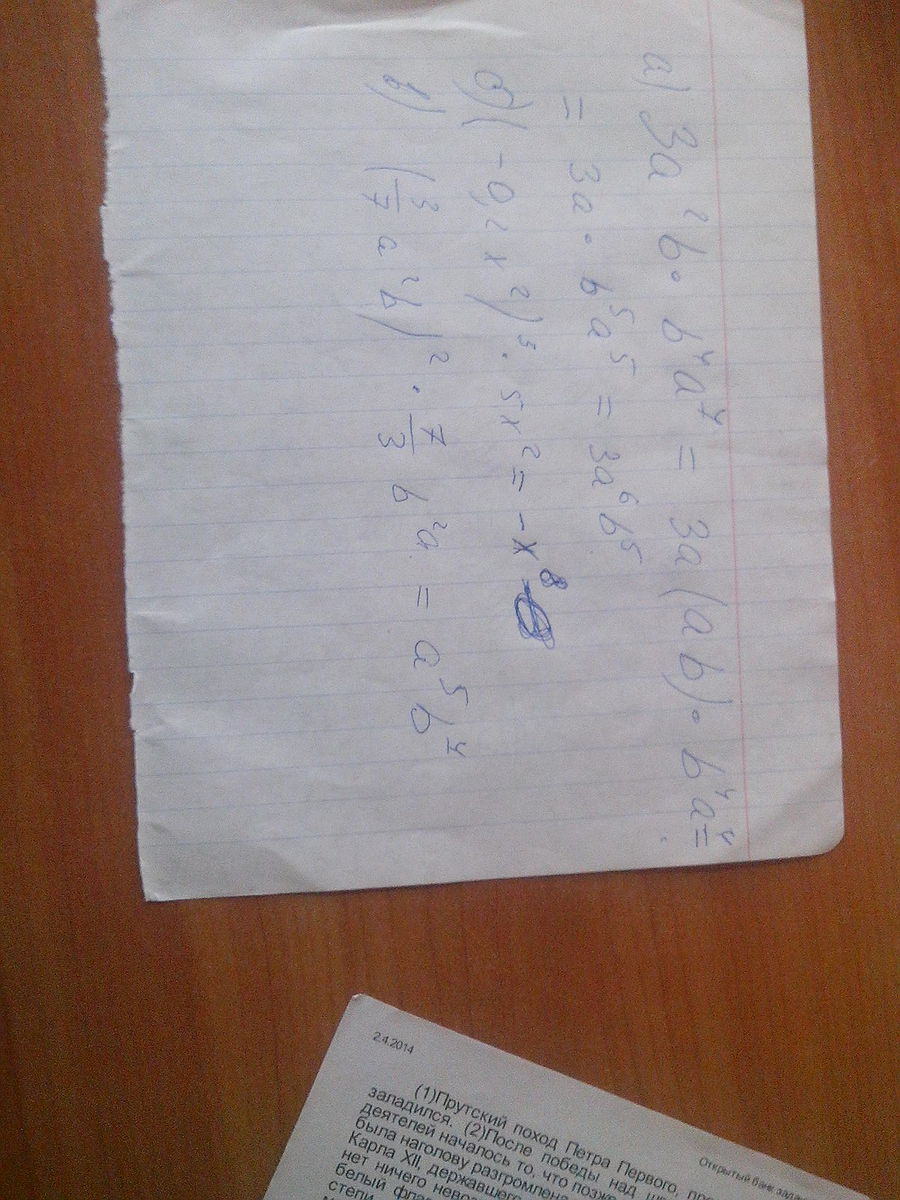 а) 3a²b · b⁴a⁴ = 3a(ab) · b⁴a⁴ =
= 3a · b⁵a⁵ = 3a⁶b⁵
б) (-0,2x²)³ · 5x² = -x⁸
в) (3/7 a²b)² · 7/3 b²a = a⁵b⁴
2.4.2014
Открытый банк
(1)Прутский поход Петра Первого,
западился. (2)После победы над
деятелей началось то, что
была наголову разгромлена
Карла XII, державшего
нет ничего
белый
степи